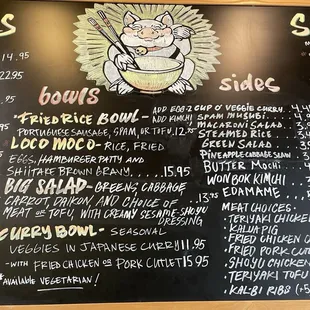 14.95
22.95
bowls
FRIED RICE BOWL - ADD EGG-2
ADD KIMCHI
PORTUGUESE SAUSAGE, SPAM, OR TOFU .12.75
LOCO MOCO - RICE, FRIED
EGGS, HAMBURGER PATTY AND
SHIITAKE BROWN GRAVY.....15.95
BIG SALAD - GREENS, CABBAGE
CARROT, DAIKON, AND CHOICE OF 13.95
MEAT OR TOFU, WITH CREAMY SESAME-SHOYU
DRESSING
CURRY BOWL - SEASONAL
VEGGIES IN JAPANESE CURRY 11.95
-WITH FRIED CHICKEN OR PORK CUTLET 15.95
*AVAILABLE VEGETARIAN!
sides
CUP O' VEGGIE CURRY
SPAM MUSUBI
MACARONI SALAD
STEAMED RICE
GREEN SALAD
PINEAPPLE CABBAGE SLAW
BUTTER MOCHI
WON BOK KIMCHI
EDAMAME
MEAT CHOICES:
- TERIYAKI CHICKEN
- KALUA PIG
- FRIED CHICKEN
- FRIED PORK
- SHOYU CHICKEN
- TERIYAKI TOFU
- KALBI RIBS